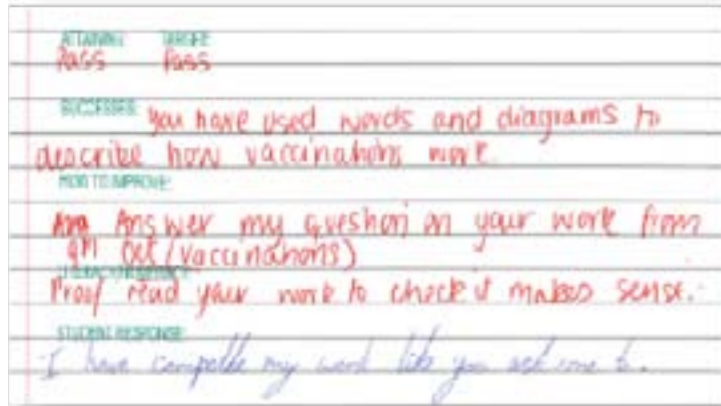 ATTAINING: TARGET:
Pass Pass
SUCCESSES: You have used words and diagrams to
describe how vaccinations work.
HOW TO IMPROVE:
Answer my question on your work from
9th Oct (vaccinations)
Proof read your work to check it makes sense.
STUDENT RESPONSE:
I have my work like you ask me to.